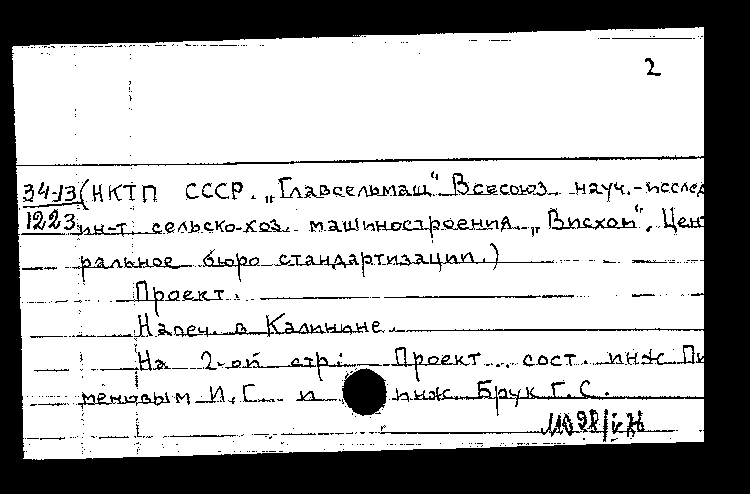 2
34-13 (НКТП СССР. „Главсельмаш“ Всесоюз. науч.-исслед
1223 ин-т сельско-хоз. машиностроения „Висхом“. Цент
ральное бюро стандартизации.)
Проект.
Напеч. в Калинине.
На 2-ой стр: Проект сост. инж Пи
меновым И.Г. и инж. Брук Г.С.